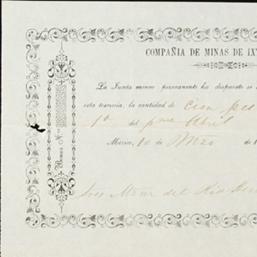 COMPAÑIA DE MINAS DE IX
La Junta menor permanente ha dispuesto se
esta tesorería, la cantidad de Cien pes
1º del pmo Abril
Mexico, 10 de Mzo de 1
Sres Min del